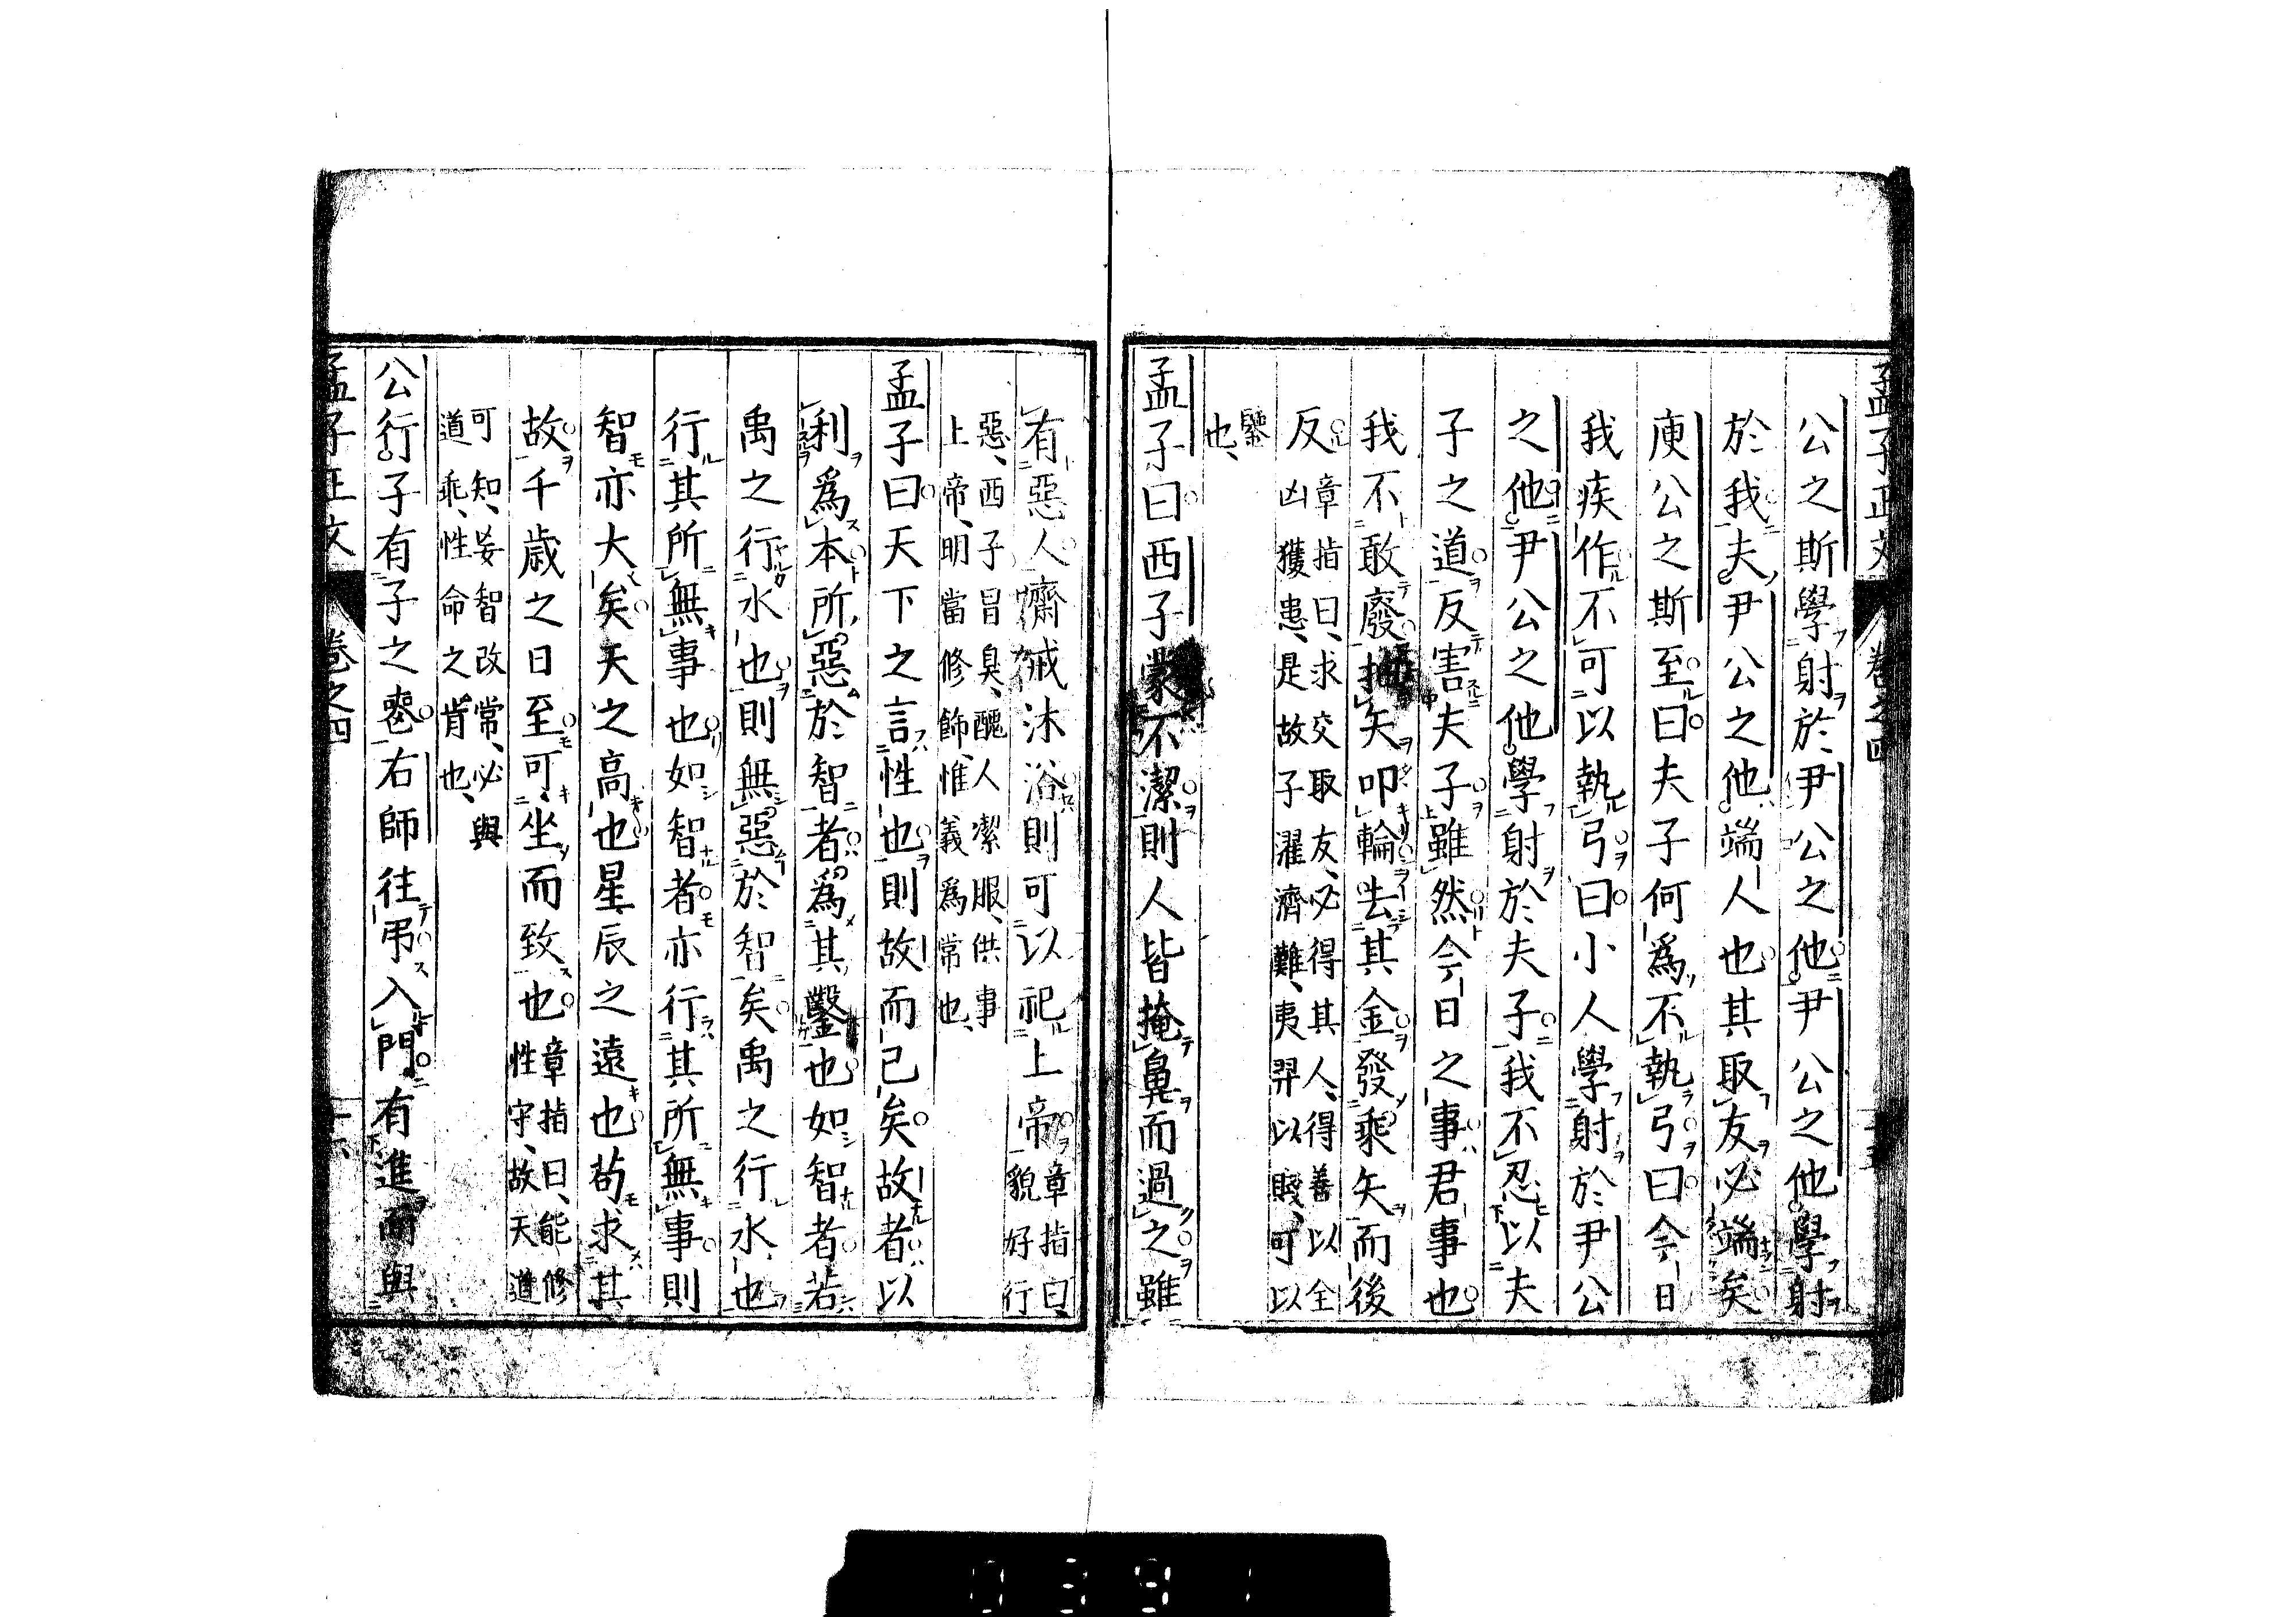 孟子正文 卷之四 十五
公之斯學射於尹公之他尹公之他學射
於我夫尹公之他端人也其取友必端矣
庾公之斯至曰夫子何爲不執弓曰今日
我疾作不可以執弓曰小人學射於尹公
之他尹公之他學射於夫子我不忍以夫
子之道反害夫子雖然今日之事君事也
我不敢廢抽矢叩輪去其金發乘矢而後
反章指曰、求交取友、必得其人、得善以全
凶獲患、是故子濯濟難、夷羿以賤、可以
鑒
也、
孟子曰西子蒙不潔則人皆掩鼻而過之雖
有惡人齋戒沐浴則可以祀上帝章指曰、
貌好行
惡、西子冒臭、醜人潔服、供事
上帝、明當修飾、惟義爲常也、
孟子曰天下之言性也則故而已矣故者以
利爲本所惡於智者爲其鑿也如智者若
禹之行水也則無惡於智矣禹之行水也
行其所無事也如智者亦行其所無事則
智亦大矣天之高也星辰之遠也苟求其
故千歲之日至可坐而致也章指曰、能修
性守、故天道
可知、妄智改常、必與
道乖、性命之肯也、
公行子有子之喪右師往弔入門有進而與
孟子正文 卷之四 十六
0391